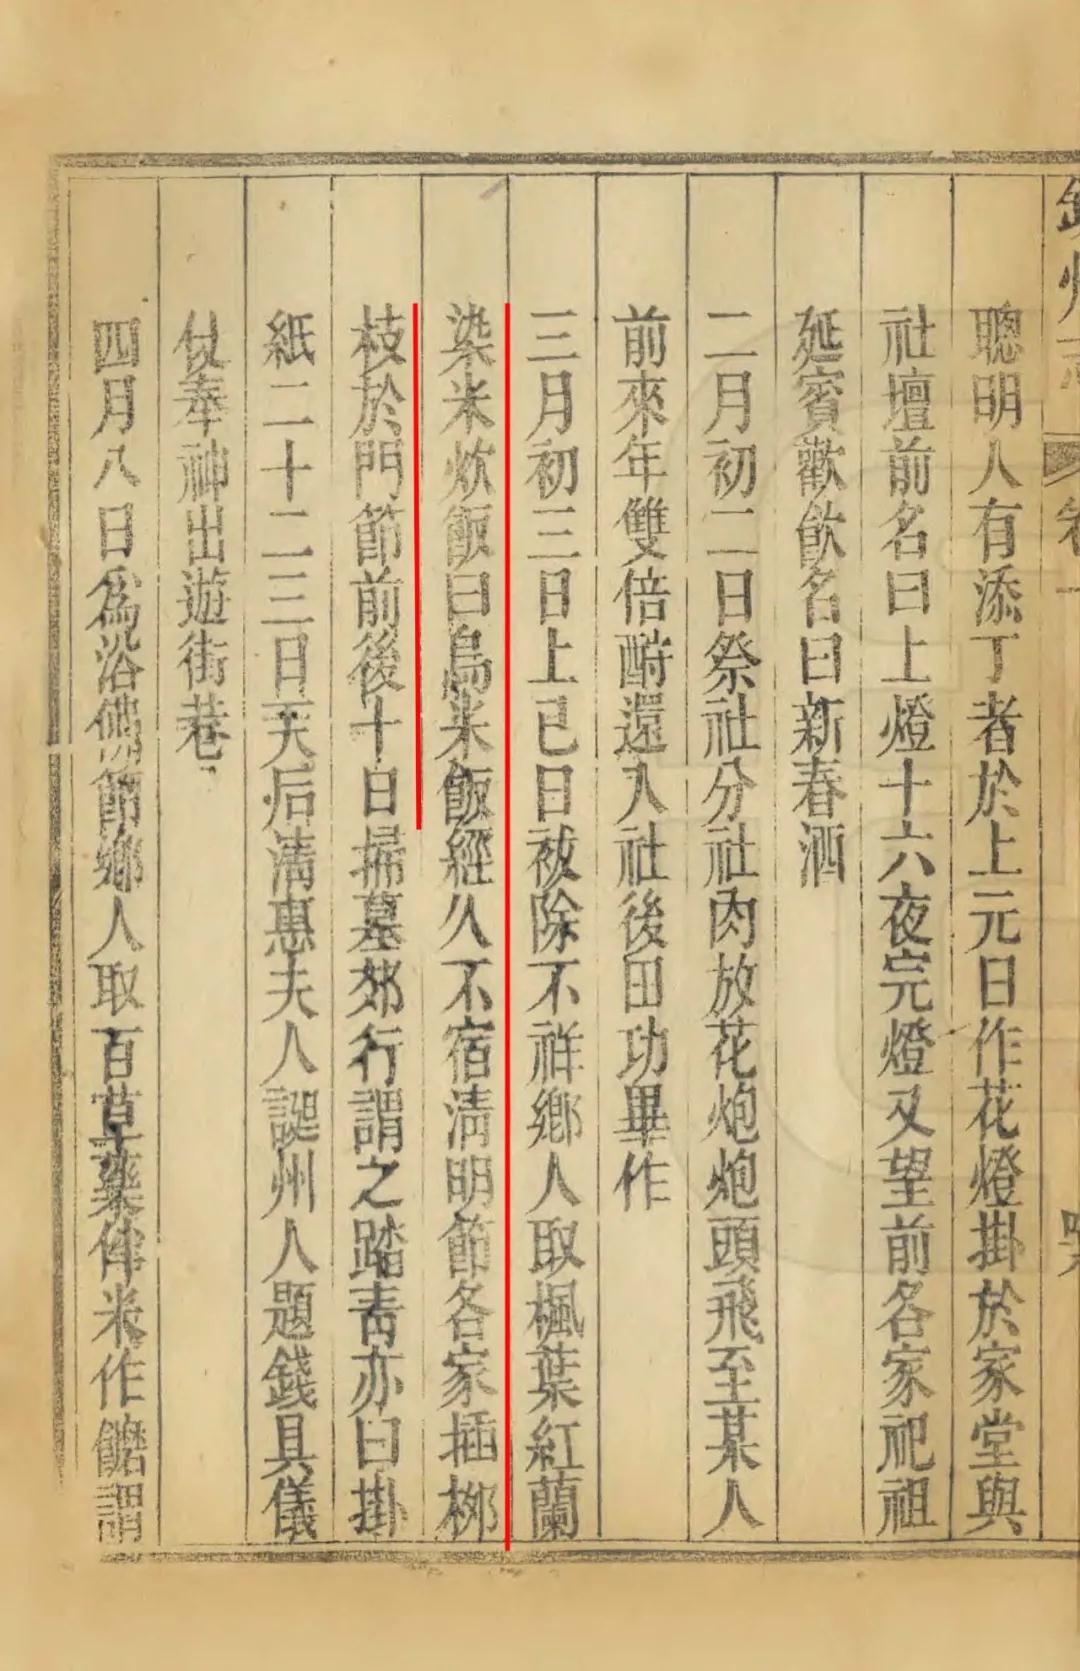 欽州志
卷一
聰明人有添丁者於上元日作花燈掛於家堂與
社壇前名曰上燈十六夜完燈又望前各家祀祖
延賓歡飲名曰新春酒
二月初二日祭社分社肉放花炮炮頭飛至某人
前來年雙倍酧還入社後田功畢作
三月初三日上巳日袚除不祥鄉人取楓葉紅蘭
染米炊飯曰烏米飯經久不宿淸明節各家插栁
枝於門節前後十日掃墓郊行謂之踏靑亦曰掛
紙二十二三日天后淸惠夫人誕州人題錢具儀
仗奉神出遊街巷
四月八日爲浴佛節鄉人取百草藥伴米作𩜾謂